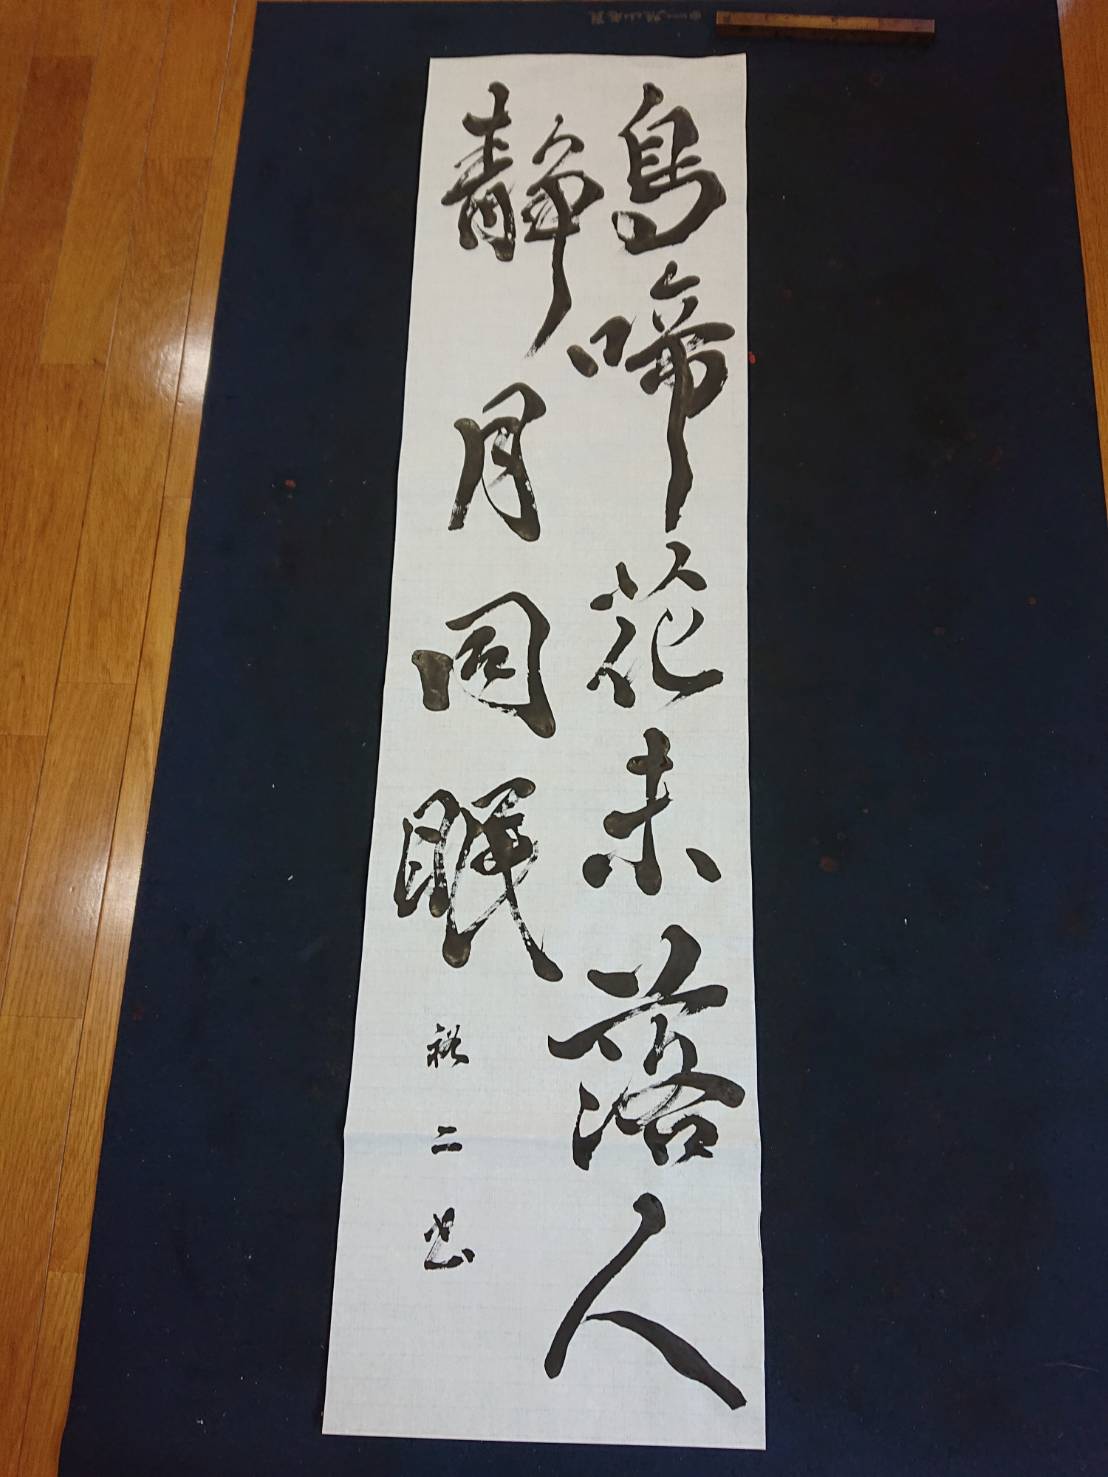 鳥啼花未落人
静月同眠
裕二书